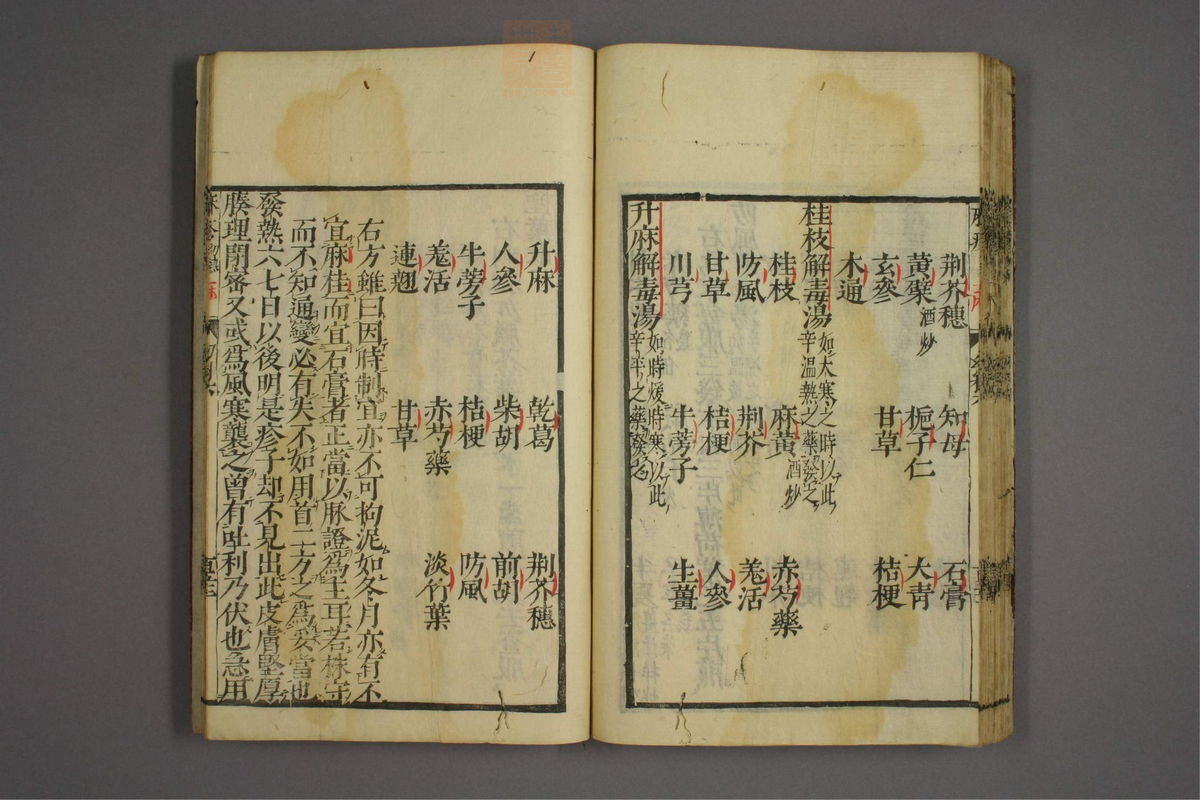 荆芥穗 知母 石膏
黃蘗酒炒 梔子仁 大青
玄參 甘草 桔梗
木通
桂枝解毒湯 如大寒之時以此辛溫熱之藥發之
桂枝 麻黃酒炒 赤芍藥
防風 荆芥 羗活
甘草 桔梗 人參
川芎 牛蒡子 生薑
升麻解毒湯 如時煖時寒以此辛平之藥發之
升麻 乾葛 荆芥穗
人參 柴胡 前胡
牛蒡子 桔梗 防風
羗活 赤芍藥 淡竹葉
連翹 甘草
右方雖曰因時制宜亦不可拘泥如冬月亦有不
宜麻桂而宜石膏者正當以脉證爲主耳若株守
而不知通變必有失不如用首二方之爲妥當也
發熱六七日以後明是疹子却不見出此皮膚堅厚
腠理閉密又或爲風寒襲之曾有吐利乃伏也急用